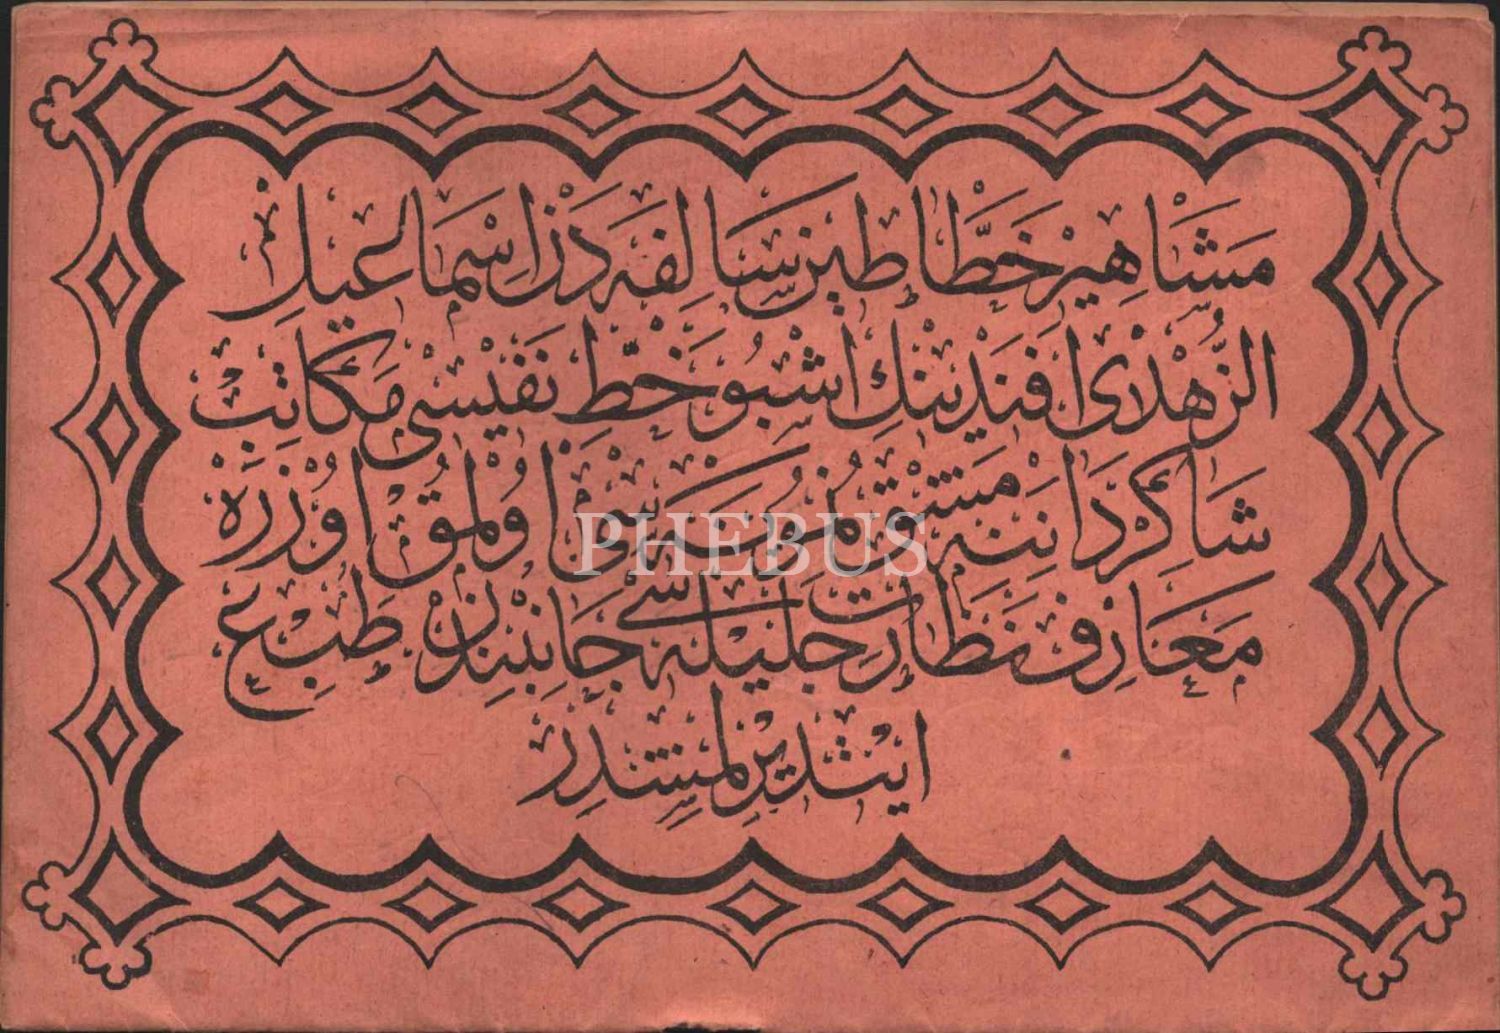 مَشَاهِيرْ خَطَّاطِينِ سَالِفَهدَنْ اِسْمَاعِيلْ
الزُّهْدِى اَفَنْدِينِكْ اِشْبُو خَطِّ نَفِيسِى مَكَاتِبْ
شَاكِرْدَانِنَه مَشْقْ نُمُونَه سِى اُولْمَقْ اُوزَرَه
مَعَارِفْ نَظَارَتِ جَلِيلَه سِى جَانِبِنْدَنْ طَبْع
ايتْدِيرِلْمِشْدِرْ
PHEBUS